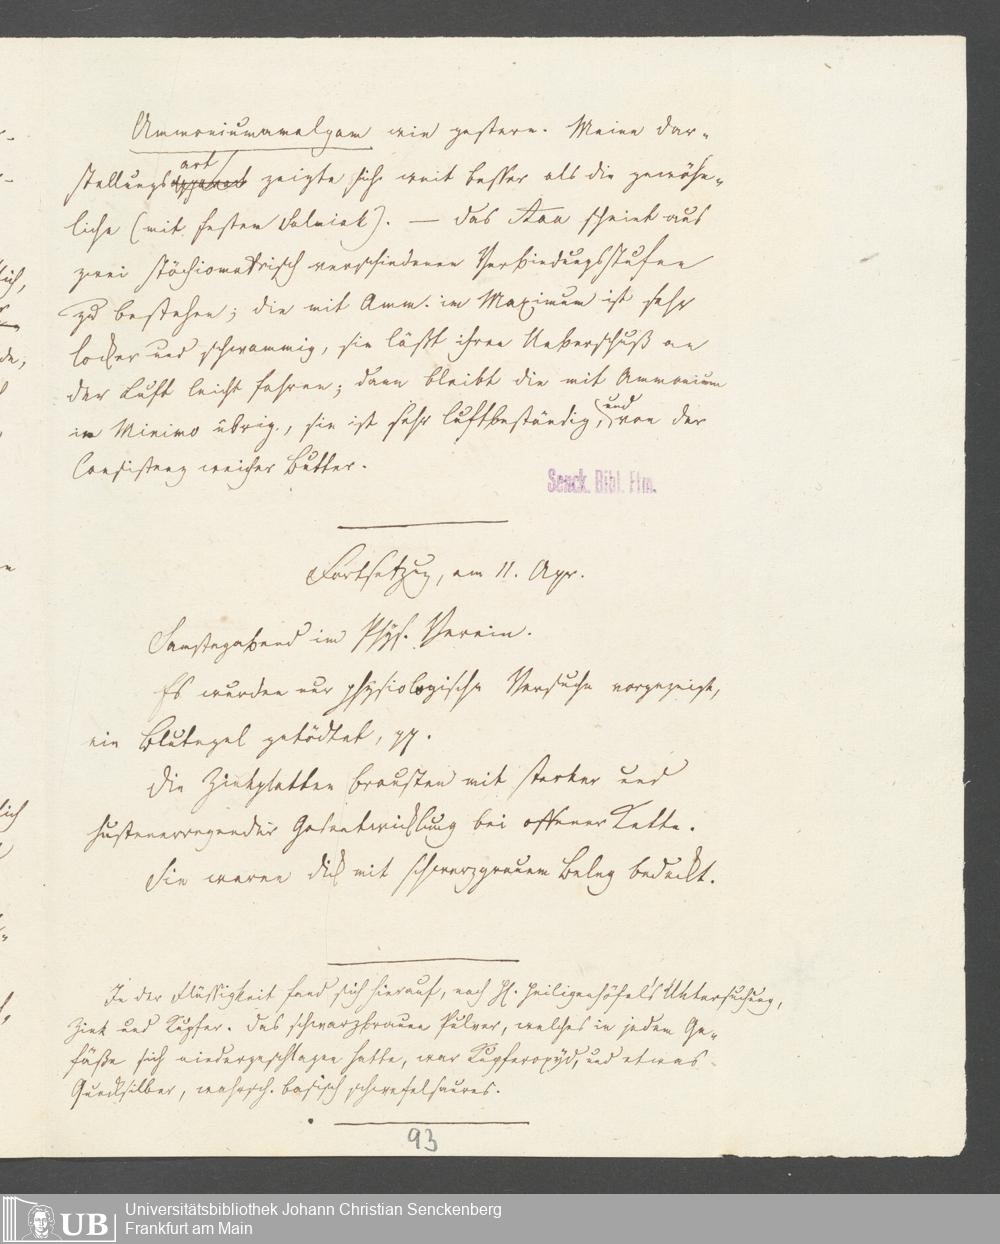 Ammoniumamalgam wie gestern. Meine Dar-
art
stellungsapparat zeigte sich weit besser als die gewöhn-
liche (mit festem Salmiak). — Das Aaa scheint aus
zwei stöchiometrisch verschiedenen Verbindungsstufen
zu bestehen; die mit Amm. im Maximum ist sehr
locker und schwammig, sie läßt ihren Ueberschuß an
der Luft leicht fahren; dann bleibt die mit Ammonium
im Minimo übrig, sie ist sehr luftbeständig, und von der
Consistenz weicher Butter.
Senck. Bibl. Ffm.
Fortsetzug, am 11. Apr.
Samstagabend im Phys. Verein.
Es wurden nur physiologische Versuche vorgezeigt,
ein Blutegel getödtet, pp.
Die Zinkplatten brausten mit starker und
hustenerregender Gasentwicklung bei offener Kette.
Sie waren dick mit schwarzgrauem Beleg bedeckt.
In der Flüssigkeit fand sich hierauf, nach H. Heiligenhöfel's Untersuchung,
Zink und Kupfer. Das schwarzbraune Pulver, welches in jedem Ge-
fäße sich niedergeschlagen hatte, war Kupferoxyd, und etwas
Quecksilber, wahrsch. basisch schwefelsaures.
93
UB
Universitätsbibliothek Johann Christian Senckenberg
Frankfurt am Main